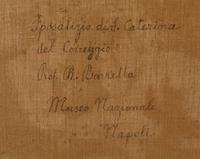 Sposalizio di S. Caterina
del Correggio
Prof. R. Barretta
Museo Nazionale
Napoli.